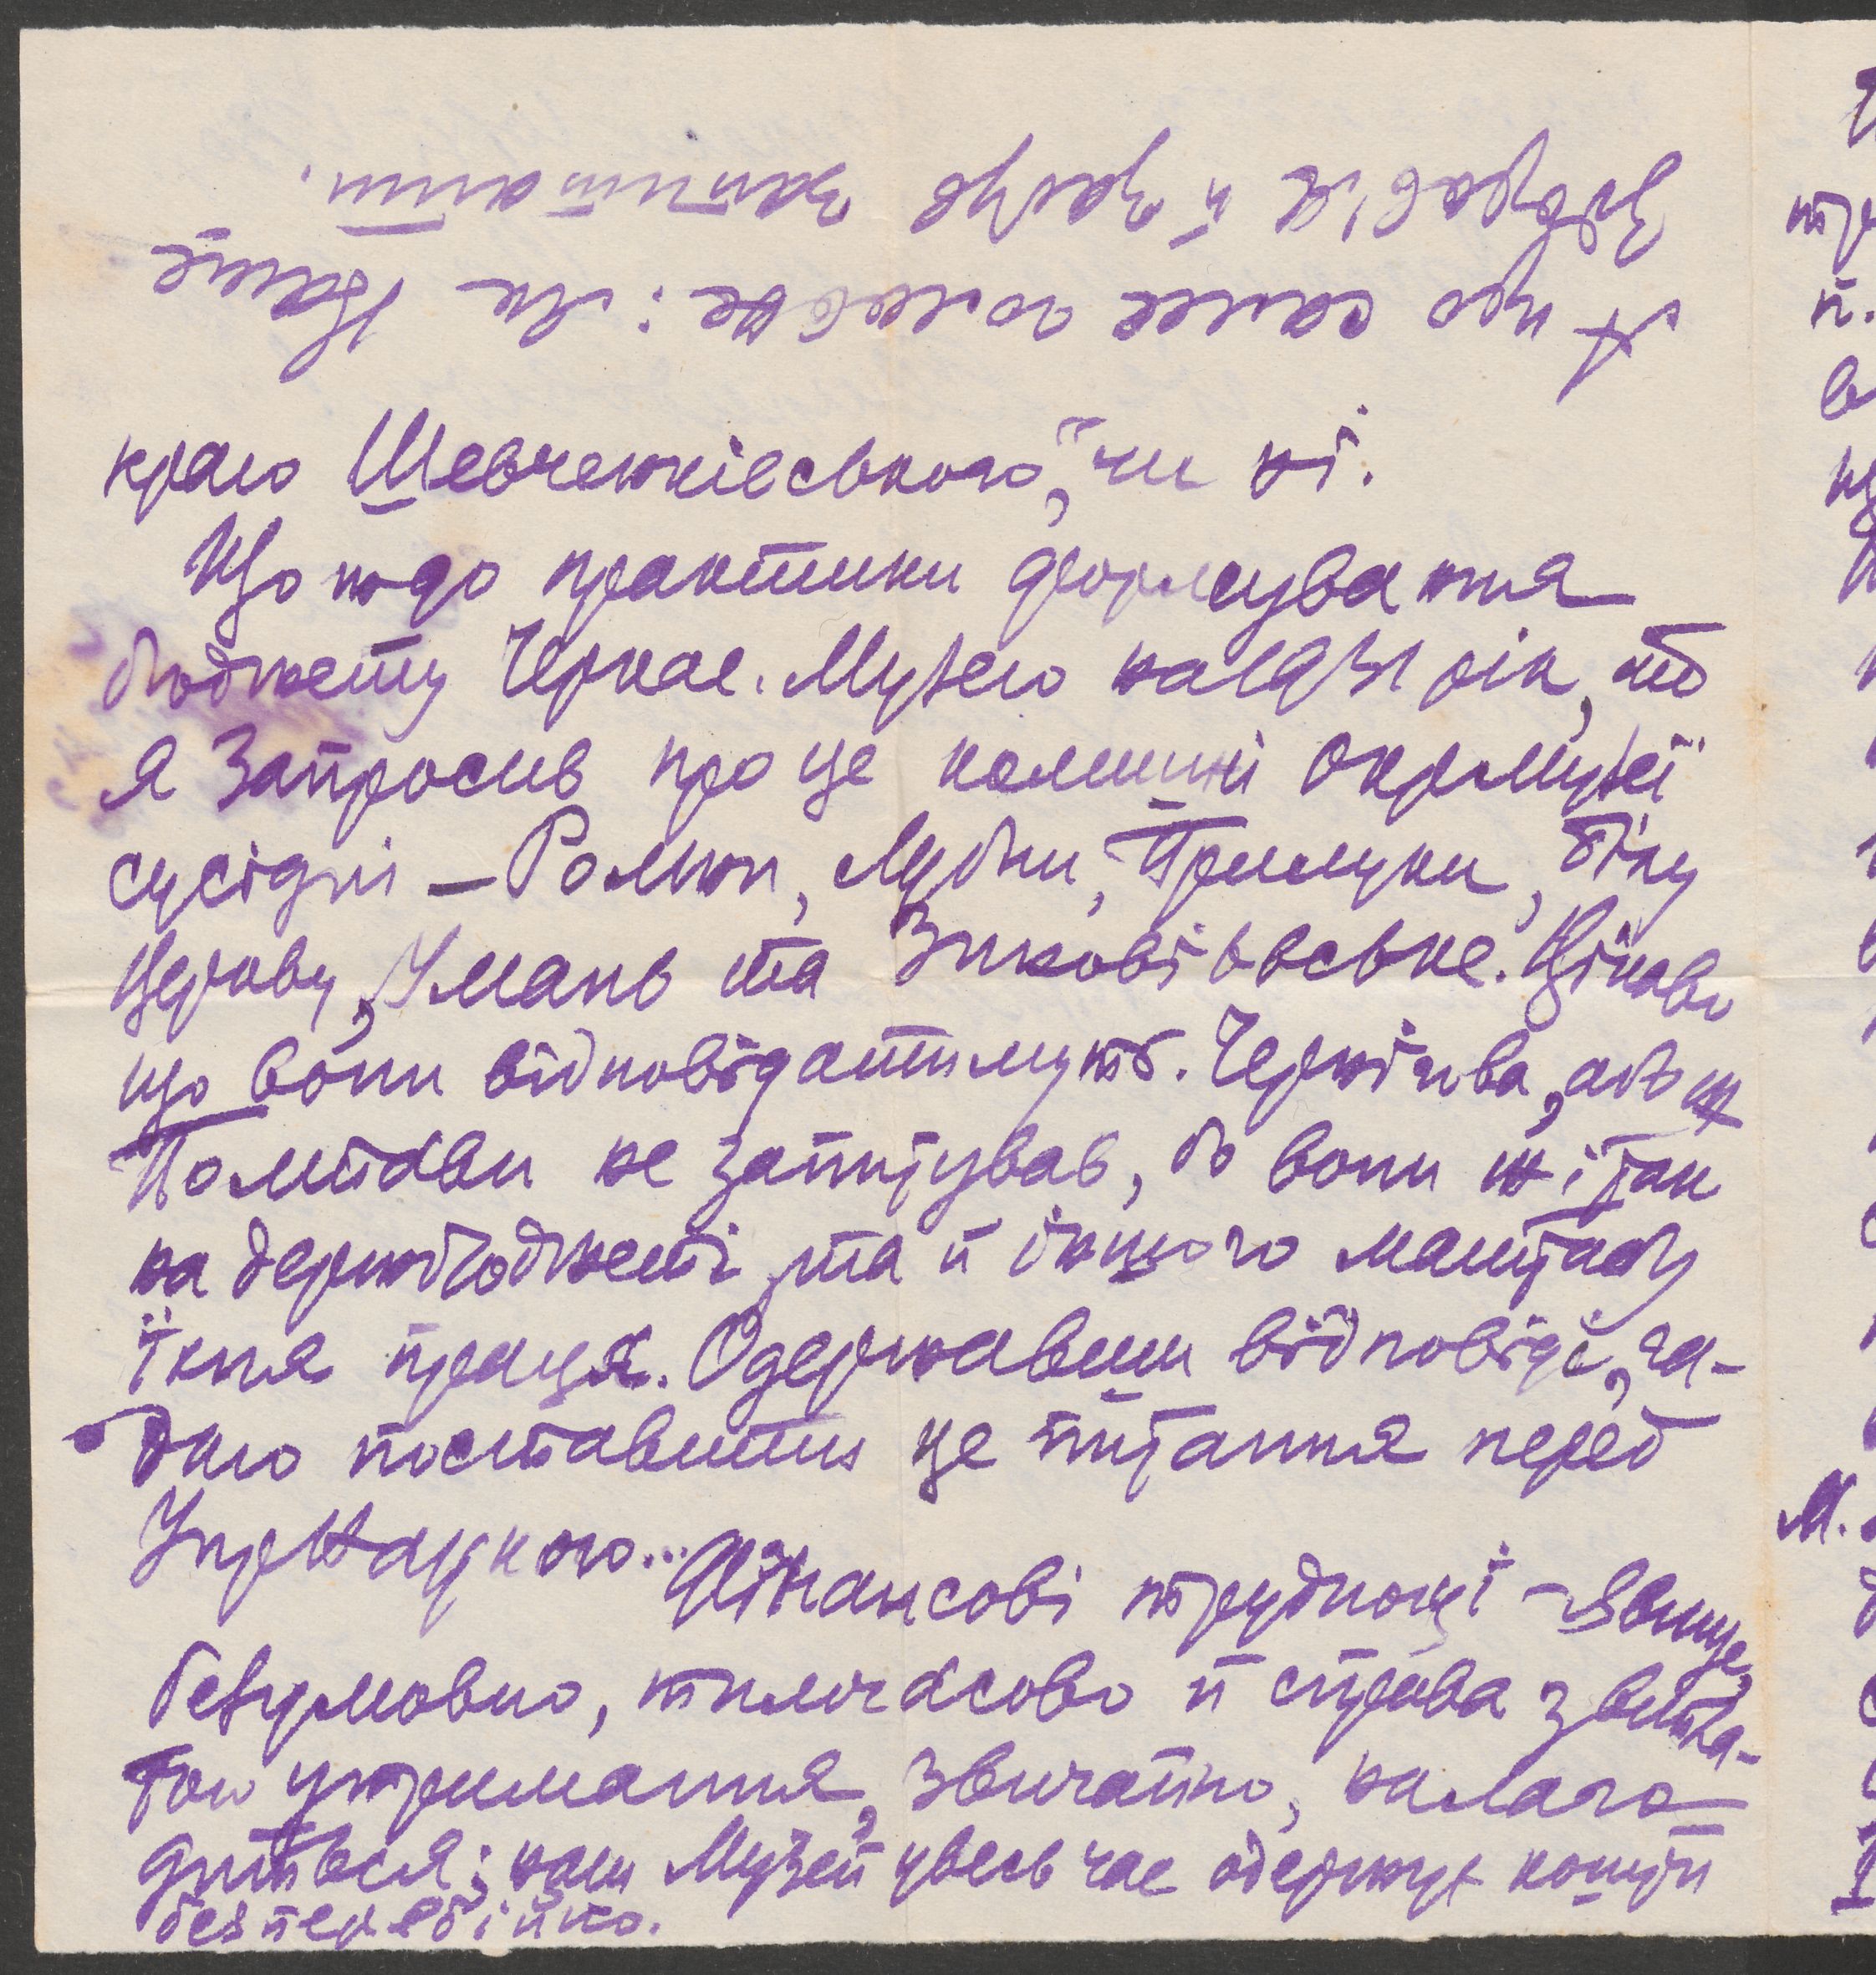 А про саме головне: як Ваше
Здоров'я й забув запитати.
краю Шевченківського", чи ні.
Що що до практики формування
бюджету Черкас. Музею на 1931 рік, то
я запросив про це колишні окрмузеї
сусідні — Ромни, Лубни, Прилуки, Білу
Церкву, Умань та Зинов'ївське. Цікаво
що вони відповідатимуть. Чернігова, або ж
Полтави не запитував, бо вони ж і так
на держбюджеті, та й іншого маштабу
їхня праця. Одержавши відповіді, га-
даю поставити це питання перед
УпрНаукою... Фінансові труднощі — явище,
безумовно, тимчасово й справа з
тою утримання, звичайно, налаго
диться; наш Музей увесь час одержує кошти
безперебійно.